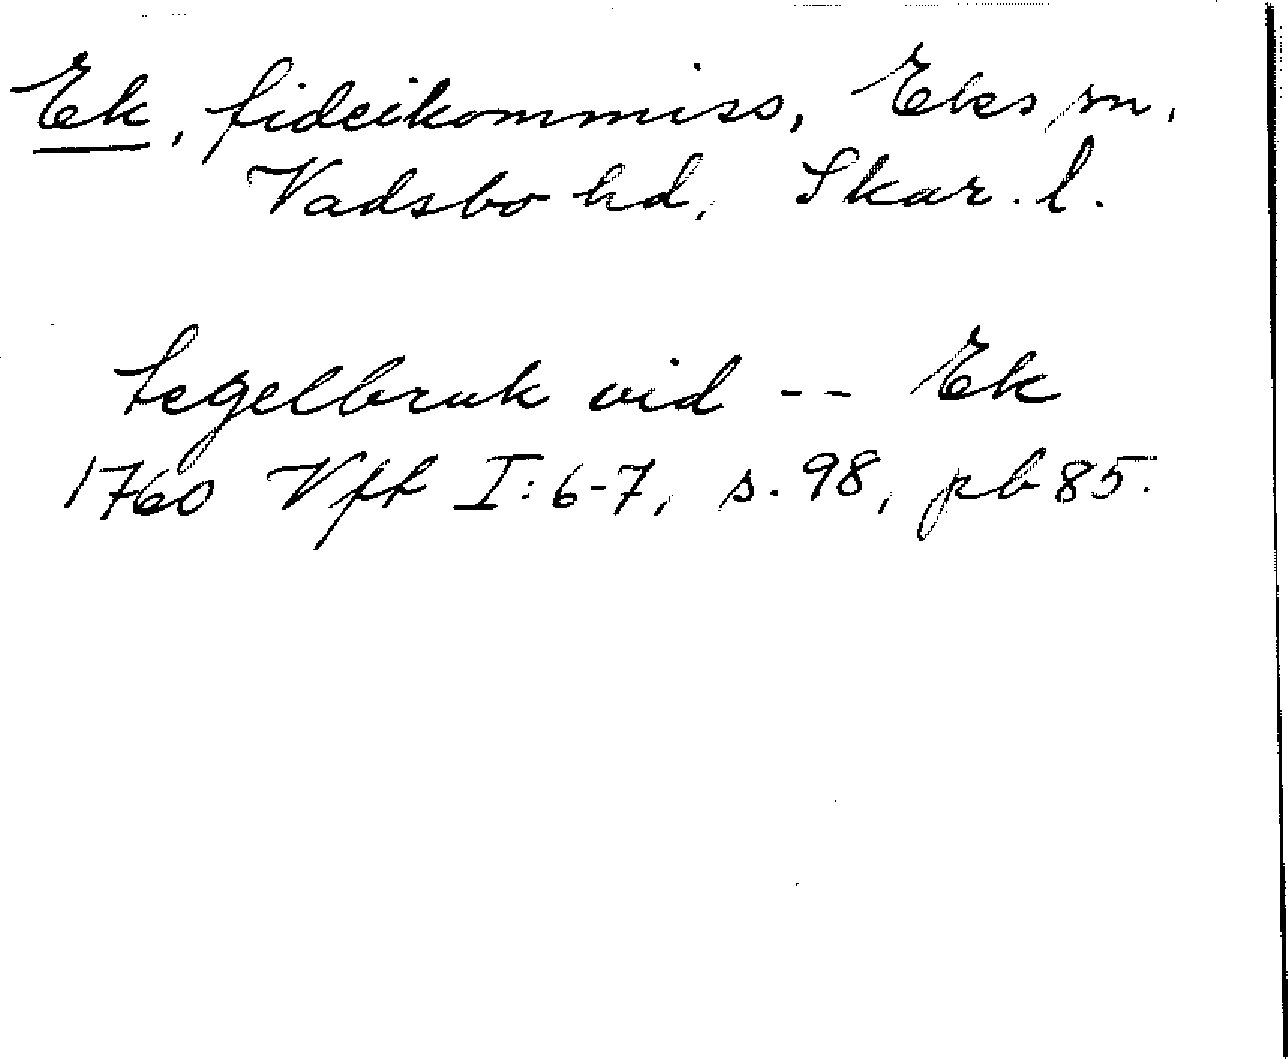 Ek, fideikommiss, Eks sn,
Vadsbo hd, Skar. l.
tegelbruk vid -- Ek
1760 Vft I:6-7, s. 98, pl 85.